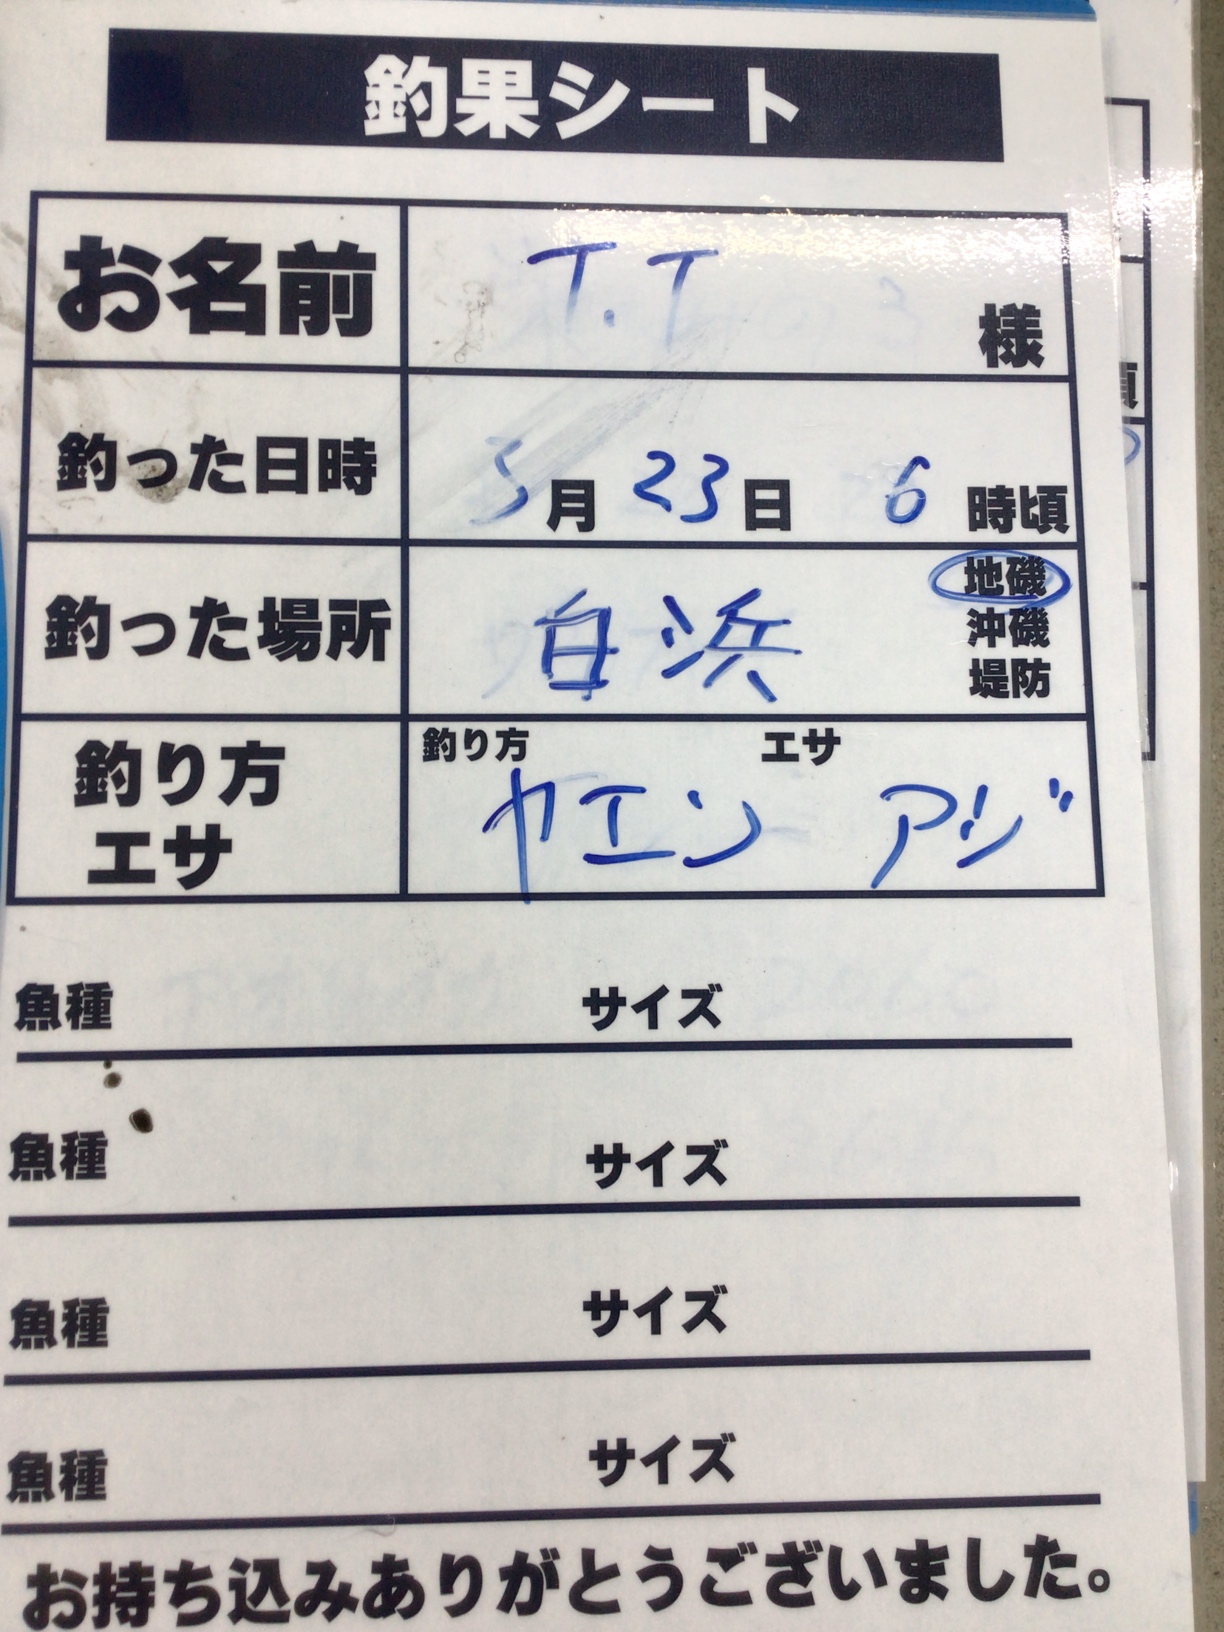 釣果シート
お名前 T.T 様
釣った日時 5月23日 6時頃
釣った場所 白浜 地磯
沖磯
堤防
釣り方 エサ
釣り方 ヤエン エサ アジ
魚種 サイズ
魚種 サイズ
魚種 サイズ
魚種 サイズ
お持ち込みありがとうございました。